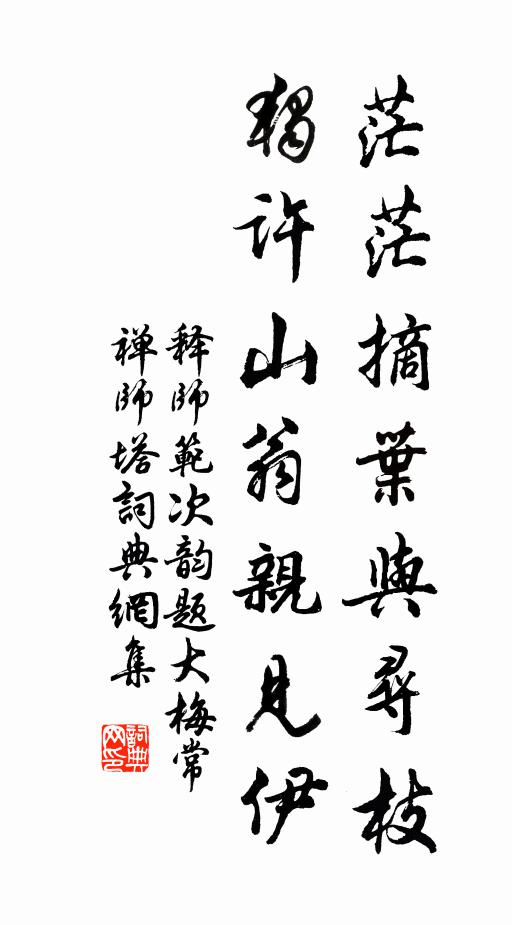 茫茫摘葉與尋枝
獨許山翁親見伊
释師範次韵题大梅常
禅師塔詞典網集
詞典网印